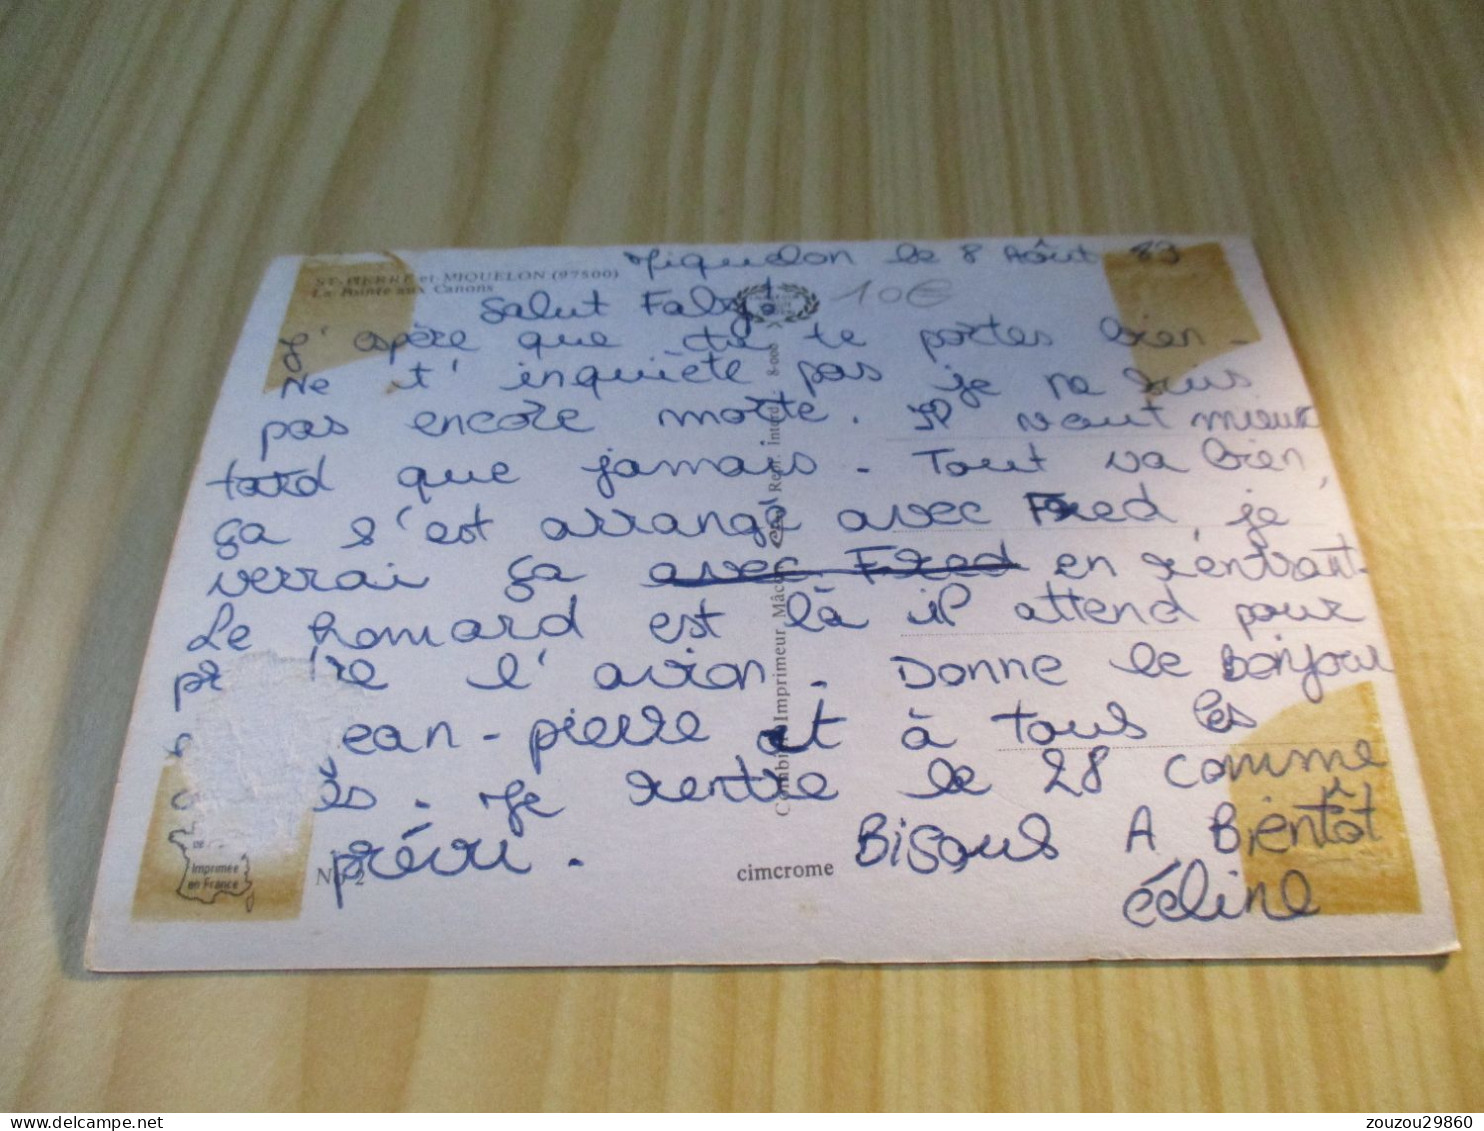 Miquelon le 8 Août 83
ST-PIERRE et MIQUELON (97500)
La Pointe aux Canons
10€
Salut Faby!
J'espère que tu te portes bien -
Ne t'inquiète pas je ne suis
pas encore morte. Il vaut mieux
tard que jamais - Tout va bien,
ça s'est arrangé avec Fred, je
verrai ça avec Fred en rentrant -
Le homard est là il attend pour
pr re l'avion - Donne le Bonjour
ean-pierre et à tous les
és - Je rentre le 28 comme
prévu -
Bisous A Bientôt
écline
Combier Imprimeur Mâcon Repr. Interd. 8-000
Imprimée
en France
No 2
cimcrome
delcampe.net
zouzou29860